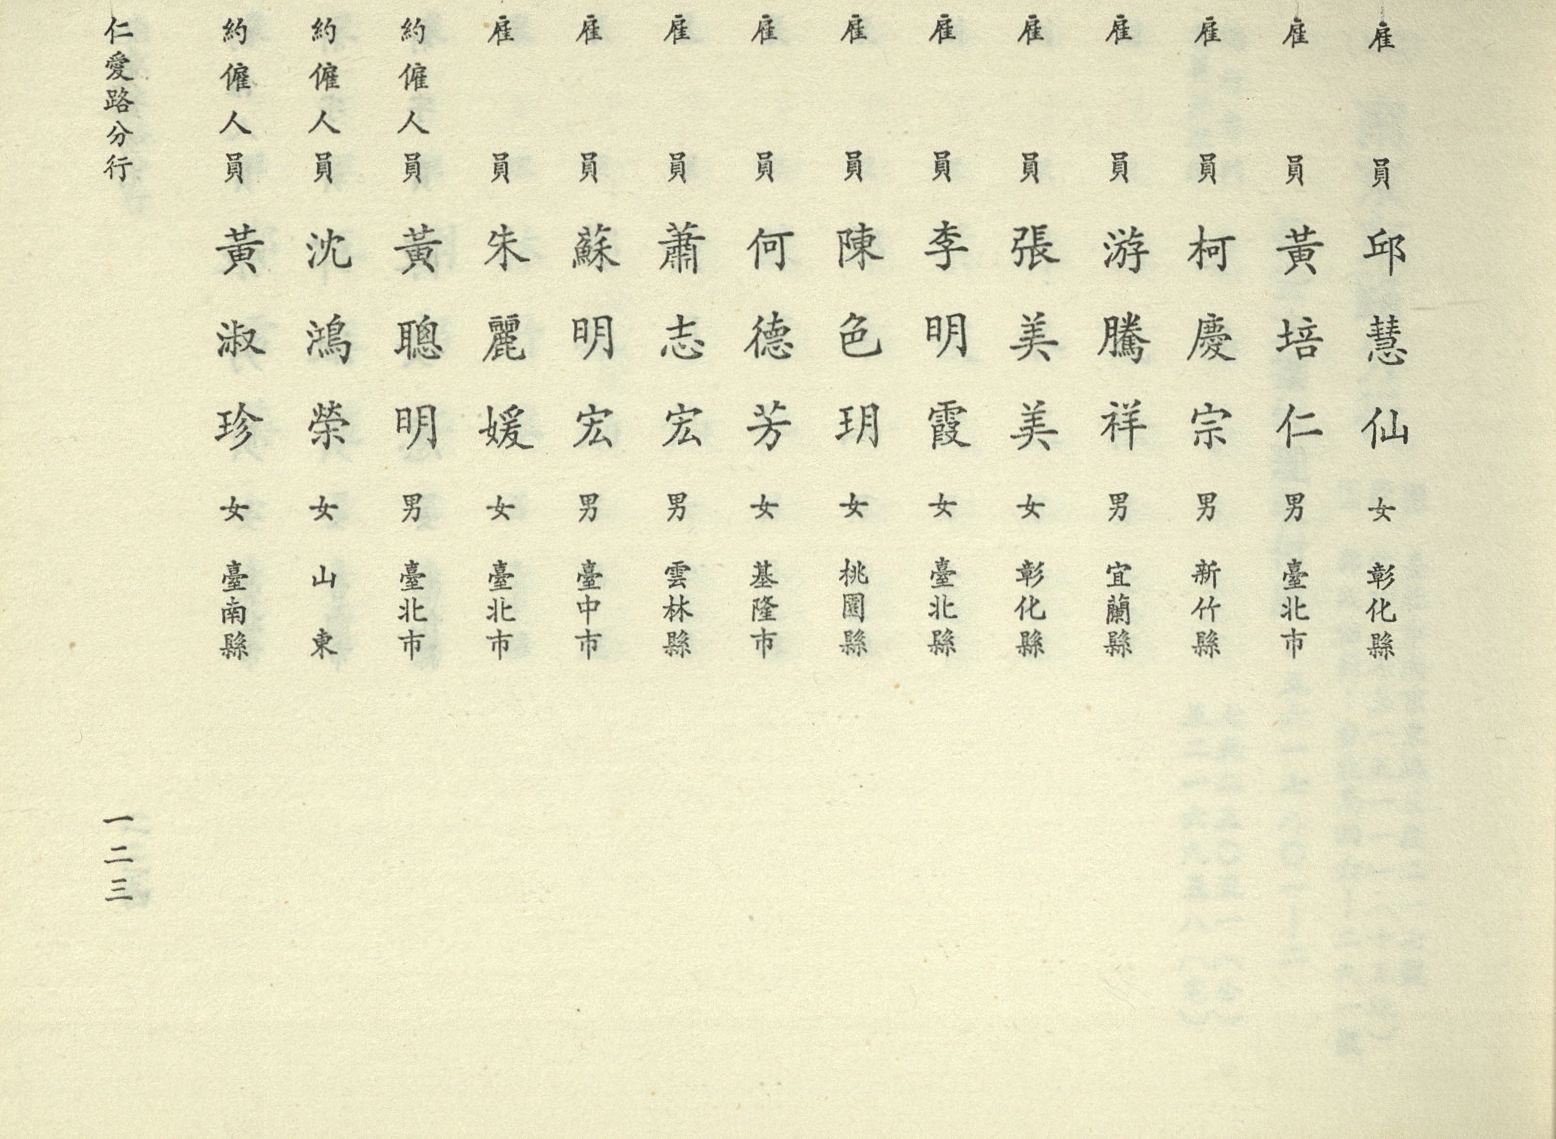 雇員 邱慧仙 女 彰化縣
雇員 黃培仁 男 臺北市
雇員 柯慶宗 男 新竹縣
雇員 游騰祥 男 宜蘭縣
雇員 張美美 女 彰化縣
雇員 李明霞 女 臺北縣
雇員 陳色玥 女 桃園縣
雇員 何德芳 女 基隆市
雇員 蕭志宏 男 雲林縣
雇員 蘇明宏 男 臺中市
雇員 朱麗媛 女 臺北市
約僱人員 黃聰明 男 臺北市
約僱人員 沈鴻榮 女 山東
約僱人員 黃淑珍 女 臺南縣
仁愛路分行 一二三